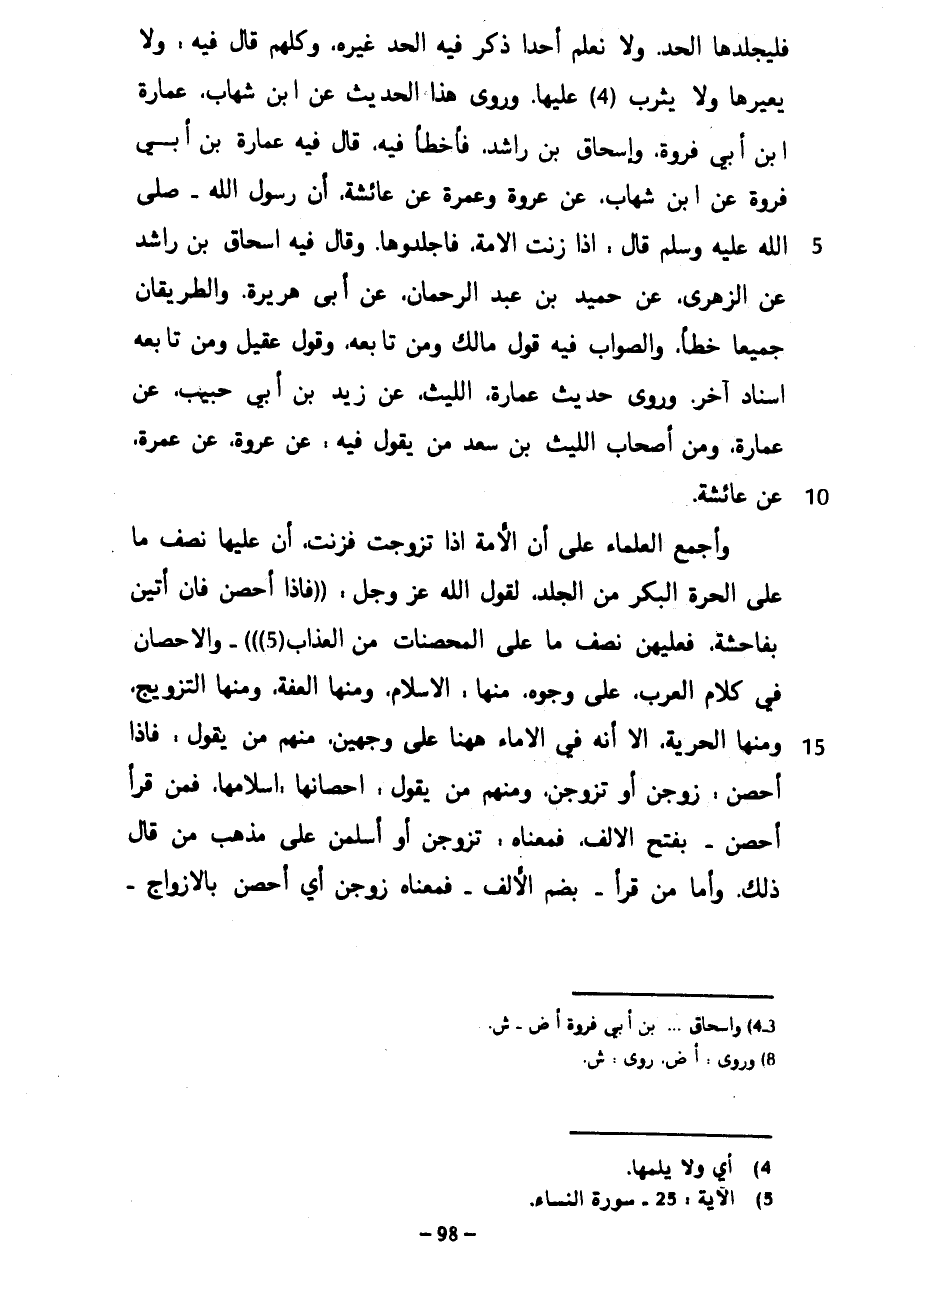 فليجلدها الحد. ولا نعلم أحدا ذكر فيه الحد غيره، وكلهم قال فيه : ولا
يعيرها ولا يثرب (4) عليها. وروى هذا الحديث عن ابن شهاب، عمارة
ابن أبي فروة، وإسحاق بن راشد، فأخطأ فيه، قال فيه عمارة بن أبي
فروة عن ابن شهاب، عن عروة وعمرة عن عائشة، أن رسول الله - صلى
الله عليه وسلم قال : اذا زنت الامة، فاجلدوها. وقال فيه اسحاق بن راشد 5
عن الزهرى، عن حميد بن عبد الرحمان، عن أبى هريرة. والطريقان
جميعا خطأ، والصواب فيه قول مالك ومن تابعه، وقول عقيل ومن تابعه
اسناد آخر. وروى حديث عمارة، الليث، عن زيد بن أبي حبيب، عن
عمارة، ومن أصحاب الليث بن سعد من يقول فيه : عن عروة، عن عمرة،
عن عائشة. 10
وأجمع العلماء على أن الأمة اذا تزوجت فزنت، أن عليها نصف ما
على الحرة البكر من الجلد، لقول الله عز وجل : ((فاذا أحصن فان أتين
بفاحشة، فعليهن نصف ما على المحصنات من العذاب(5))) - والاحصان
في كلام العرب، على وجوه، منها : الاسلام، ومنها العفة، ومنها التزويج،
ومنها الحرية، الا أنه في الاماء ههنا على وجهين، منهم من يقول : فاذا 15
أحصن : زوجن أو تزوجن، ومنهم من يقول : احصانها :اسلامها، فمن قرأ
أحصن - بفتح الالف، فمعناه : تزوجن أو أسلمن على مذهب من قال
ذلك. وأما من قرأ - بضم الألف - فمعناه زوجن أي أحصن بالازواج -
3ـ4) واسحاق ... بن أبي فروة أ ض - ش.
8) وروى : أ ض، روى : ش.
4) أي ولا يلمها.
5) الآية : 25 - سورة النساء.
- 98 -